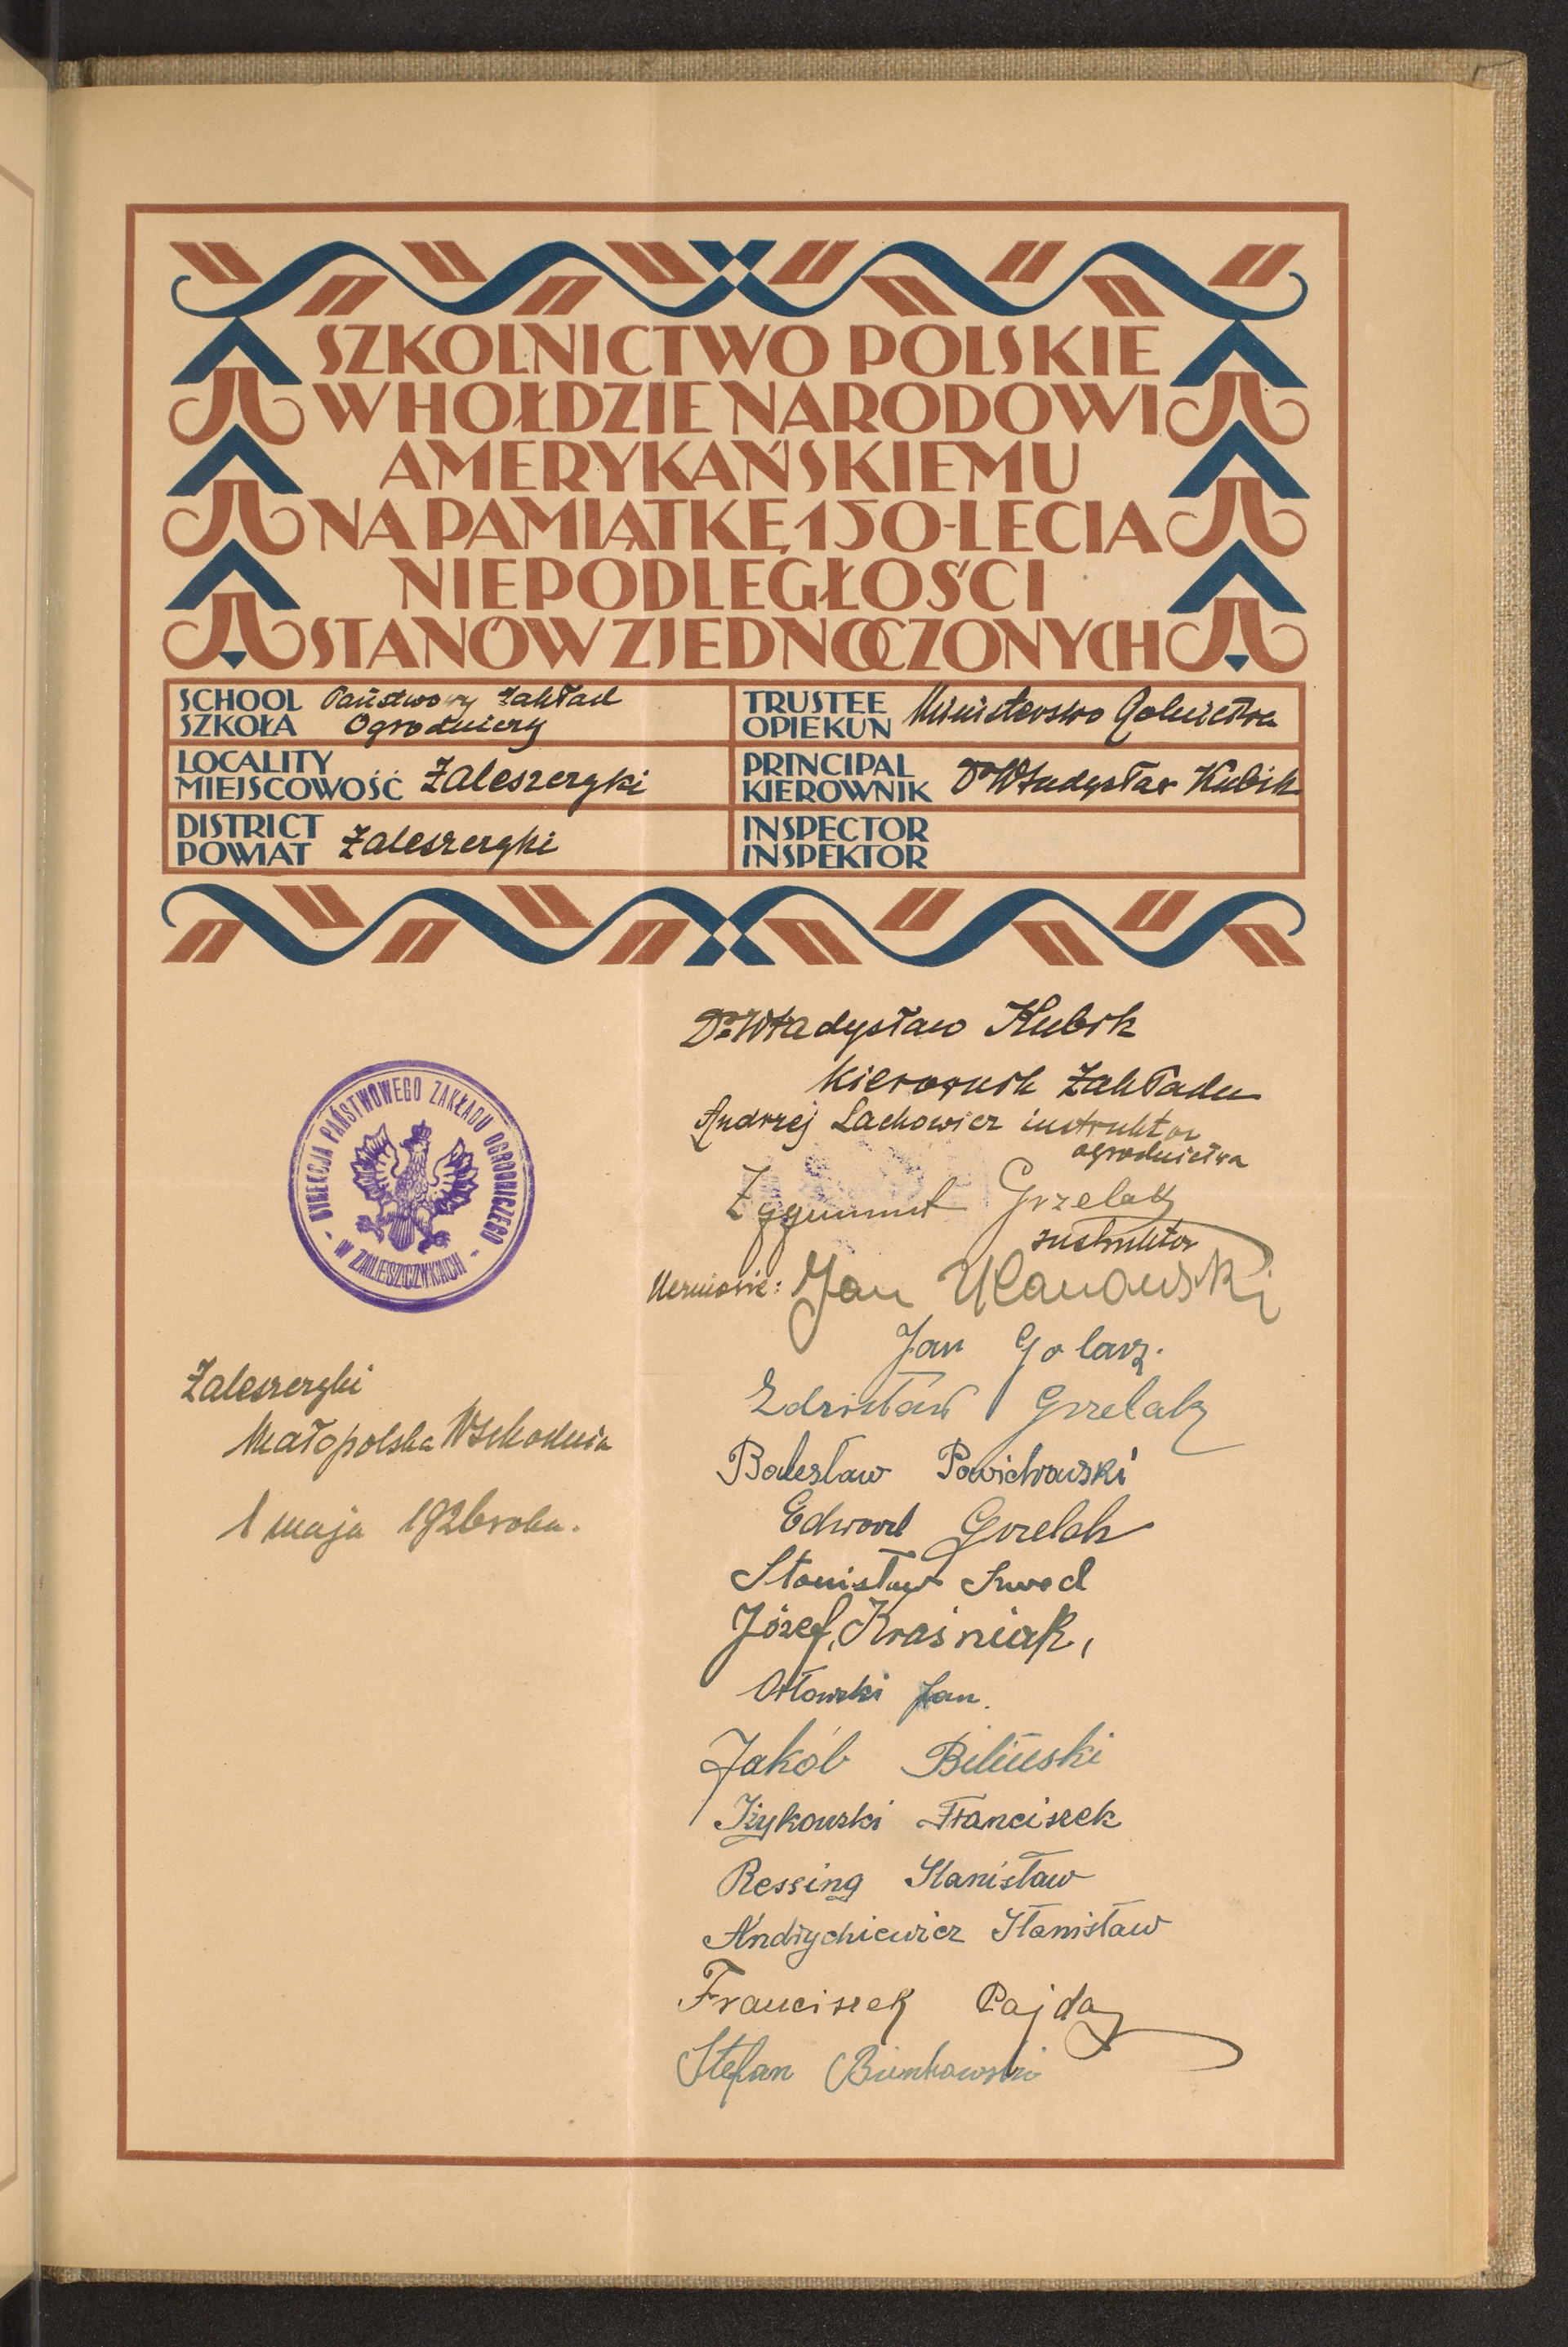 SZKOLNICTWO POLSKIE
W HOŁDZIE NARODOWI
AMERYKAŃSKIEMU
NA PAMIĄTKĘ 150-LECIA
NIEPODLEGŁOŚCI
STANÓW ZJEDNOCZONYCH
SCHOOL Państwowy Zakład
SZKOŁA Ogrodniczy
TRUSTEE
OPIEKUN Ministerstwo Rolnictwa
LOCALITY
MIEJSCOWOŚĆ Zaleszczyki
PRINCIPAL
KIEROWNIK Dr Władysław Kubik
DISTRICT
POWIAT Zaleszczyki
INSPECTOR
INSPEKTOR
Dr Władysław Kubik
Kierownik Zakładu
Andrzej Lachowicz instruktor
ogrodnictwa
Zygmunt Grzelak
instruktor
Uczniowie: Jan Ulanowski
Jan Golarz.
Zdzisław Grzelak
Bolesław Powichrowski
Edward Grzelak
Stanisław Szwed
Józef Kraśniak,
Orłowski Jan.
Jakób Biliński
Iżykowski Franciszek
Ressing Stanisław
Andrychiewicz Stanisław
Franciszek Pajda
Stefan Bienkowski
DYREKCJA PAŃSTWOWEGO ZAKŁADU OGRODNICZEGO
- W ZALESZCZYKACH -
Zaleszczyki
Małopolska Wschodnia
1 maja 1926 roku.